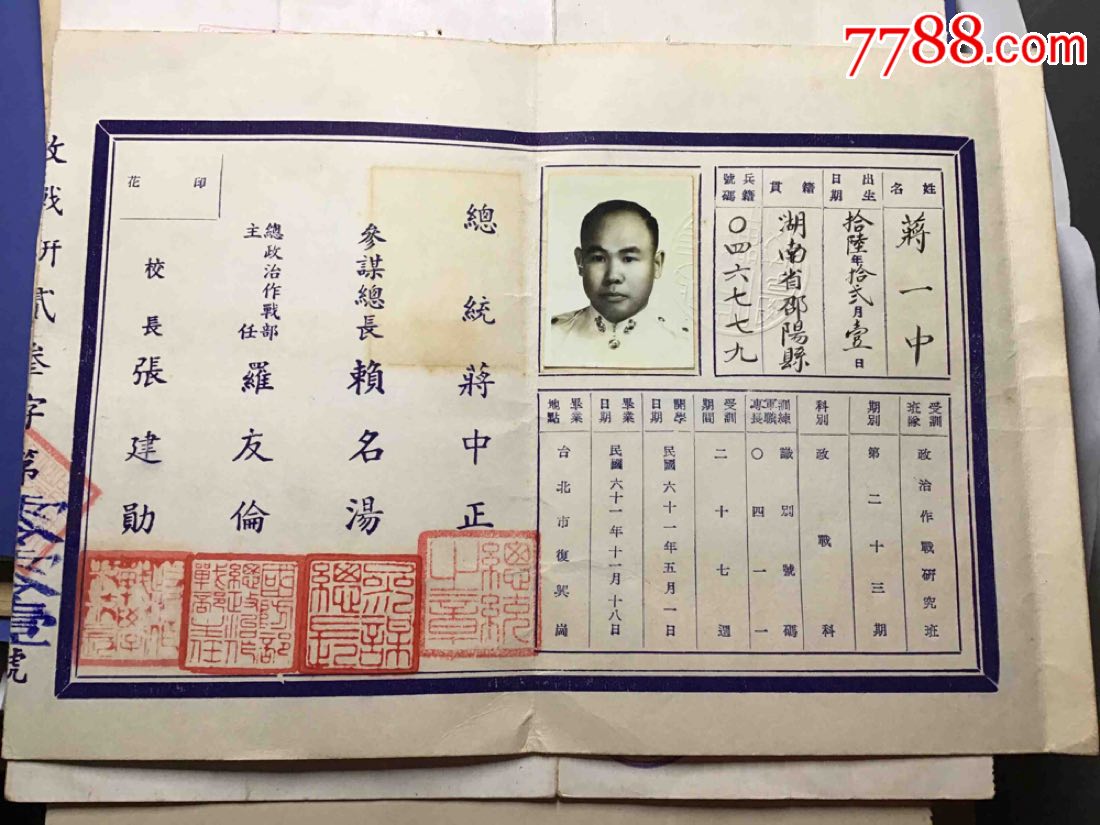 7788.com
姓名
蔣一中
出生日期
拾陸年拾弍月壹日
籍貫
湖南省邵陽縣
兵籍號碼
〇四六七七九
受訓班隊
政治作戰研究班
期別
第二十三期
科別
政戰科
訓練軍職專長
識別號碼
〇四一一
受訓期間
二十七週
開學日期
民國六十一年五月一日
畢業日期
民國六十一年十一月十八日
畢業地點
台北市復興崗
總統蔣中正
總統之章
參謀總長賴名湯
參謀總長
總政治作戰部主任羅友倫
國防部總政治作戰部主任
印花
校長張建勛
政戰研貳叁字第
號